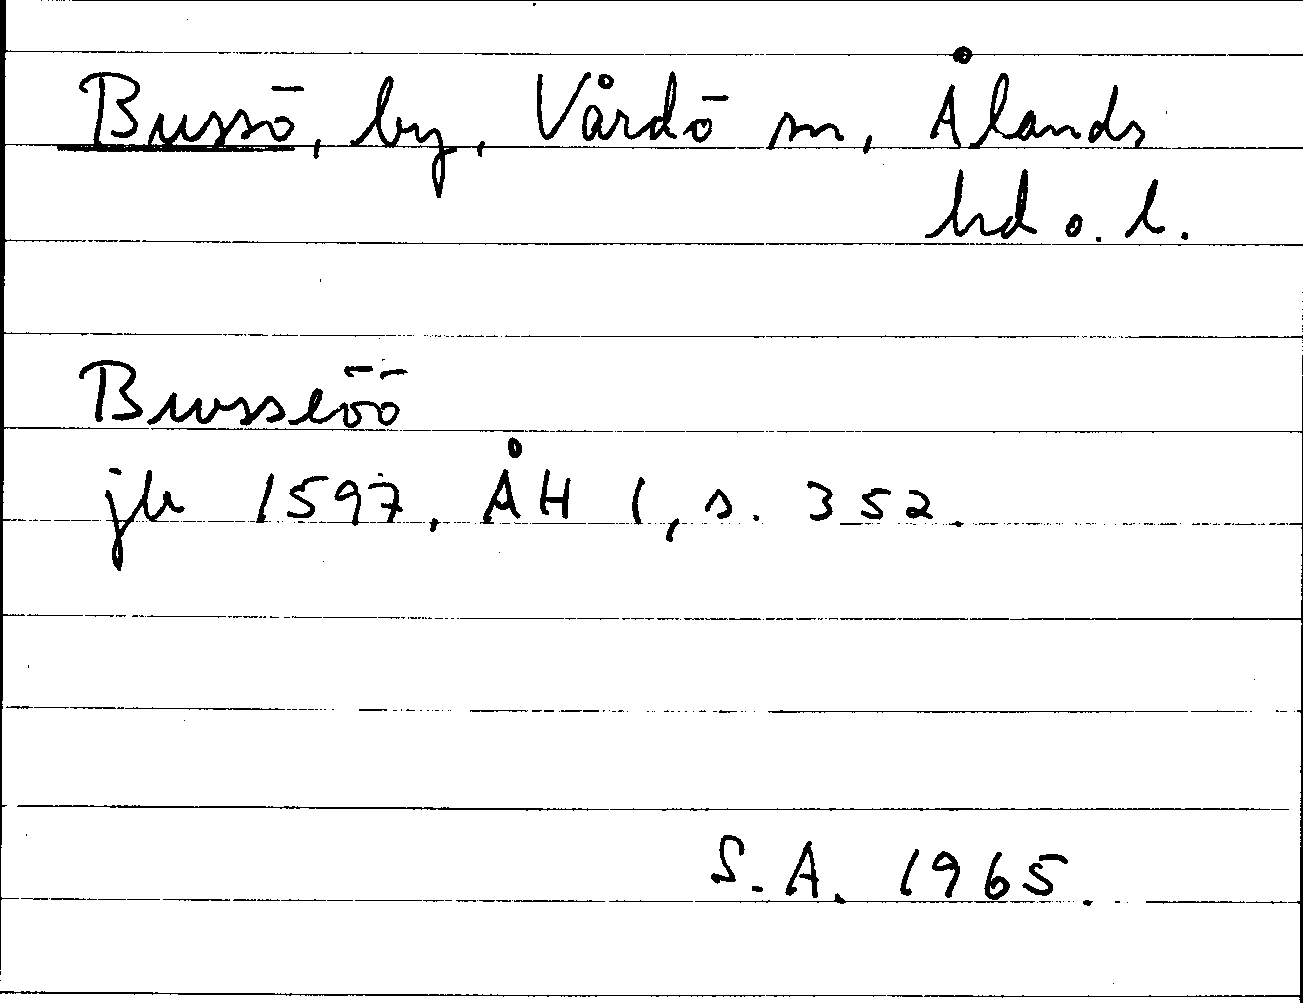 Bussö, by, Vårdö sn, Ålands
hd o. l.
Busseöö
jb 1597, ÅH 1, s. 352.
S.A. 1965.